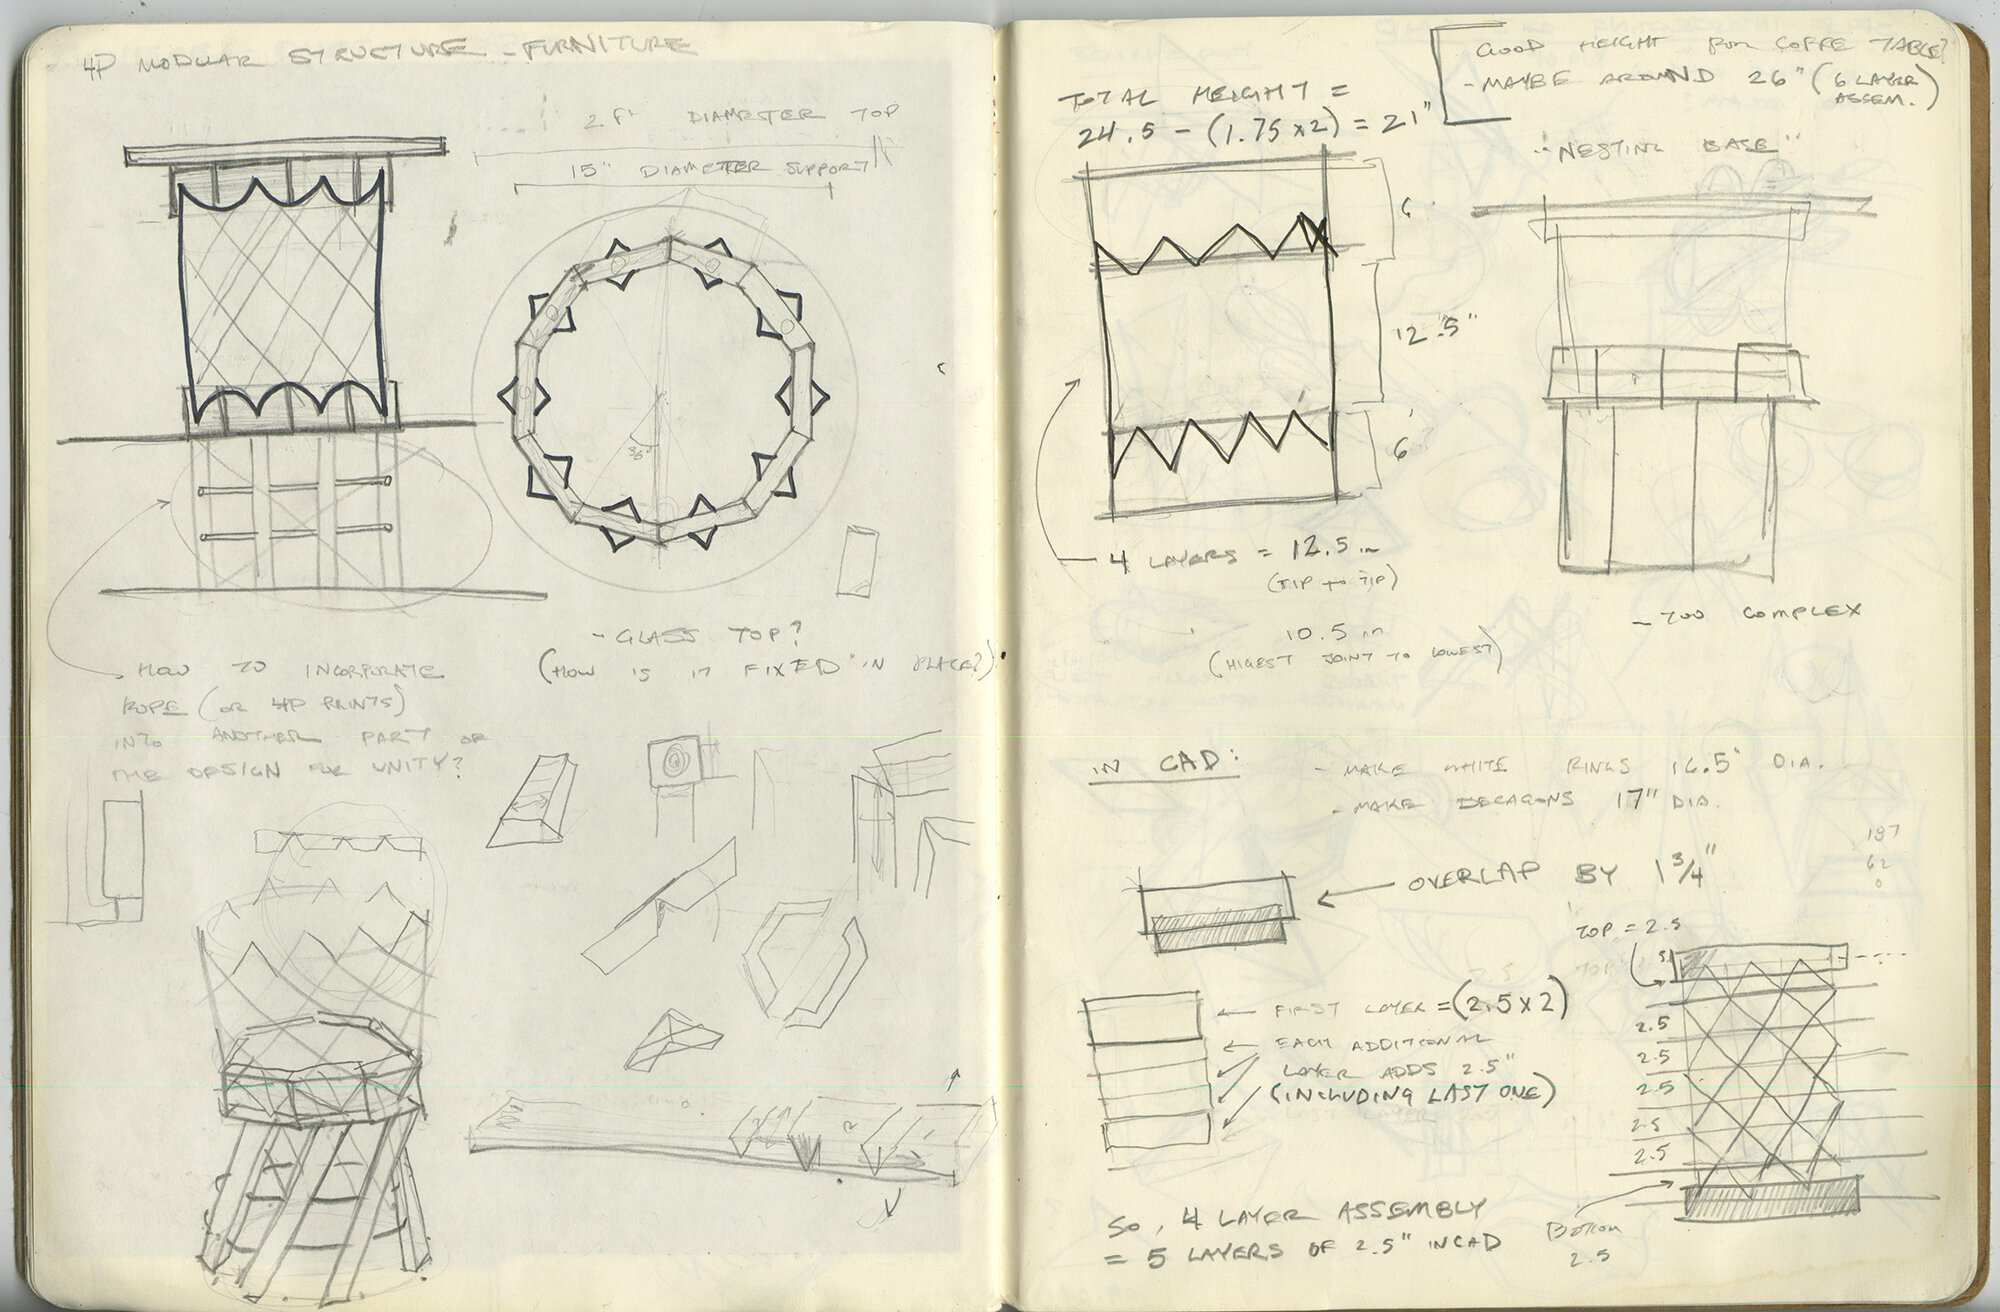 4D MODULAR STRUCTURE - FURNITURE
2 ft DIAMETER TOP
15" DIAMETER SUPPORT
36°
- GLASS TOP?
(HOW IS IT FIXED IN PLACE?)
HOW TO INCORPORATE
ROPE (OR 4D PRINTS)
INTO ANOTHER PART OF
THE DESIGN FOR UNITY?
GOOD HEIGHT FOR COFFE TABLE?
- MAYBE AROUND 26" (6 LAYER
ASSEM.)
TOTAL HEIGHT =
24.5 - (1.75 x 2) = 21"
"NESTING BASE"
6
12.5"
6
4 LAYERS = 12.5 in
(TIP to TIP)
10.5 in
(HIGEST JOINT TO LOWEST)
- TOO COMPLEX
IN CAD:
- MAKE WHITE RINGS 16.5" DIA.
- MAKE DECAGONS 17" DIA.
187
62
0
OVERLAP BY 1 3/4"
TOP = 2.5
FIRST LAYER = (2.5 x 2)
EACH ADDITIONAL
LAYER ADDS 2.5"
(INCLUDING LAST ONE)
2.5
2.5
2.5
2.5
2.5
SO, 4 LAYER ASSEMBLY
= 5 LAYERS OF 2.5" IN CAD
BOTTOM
2.5